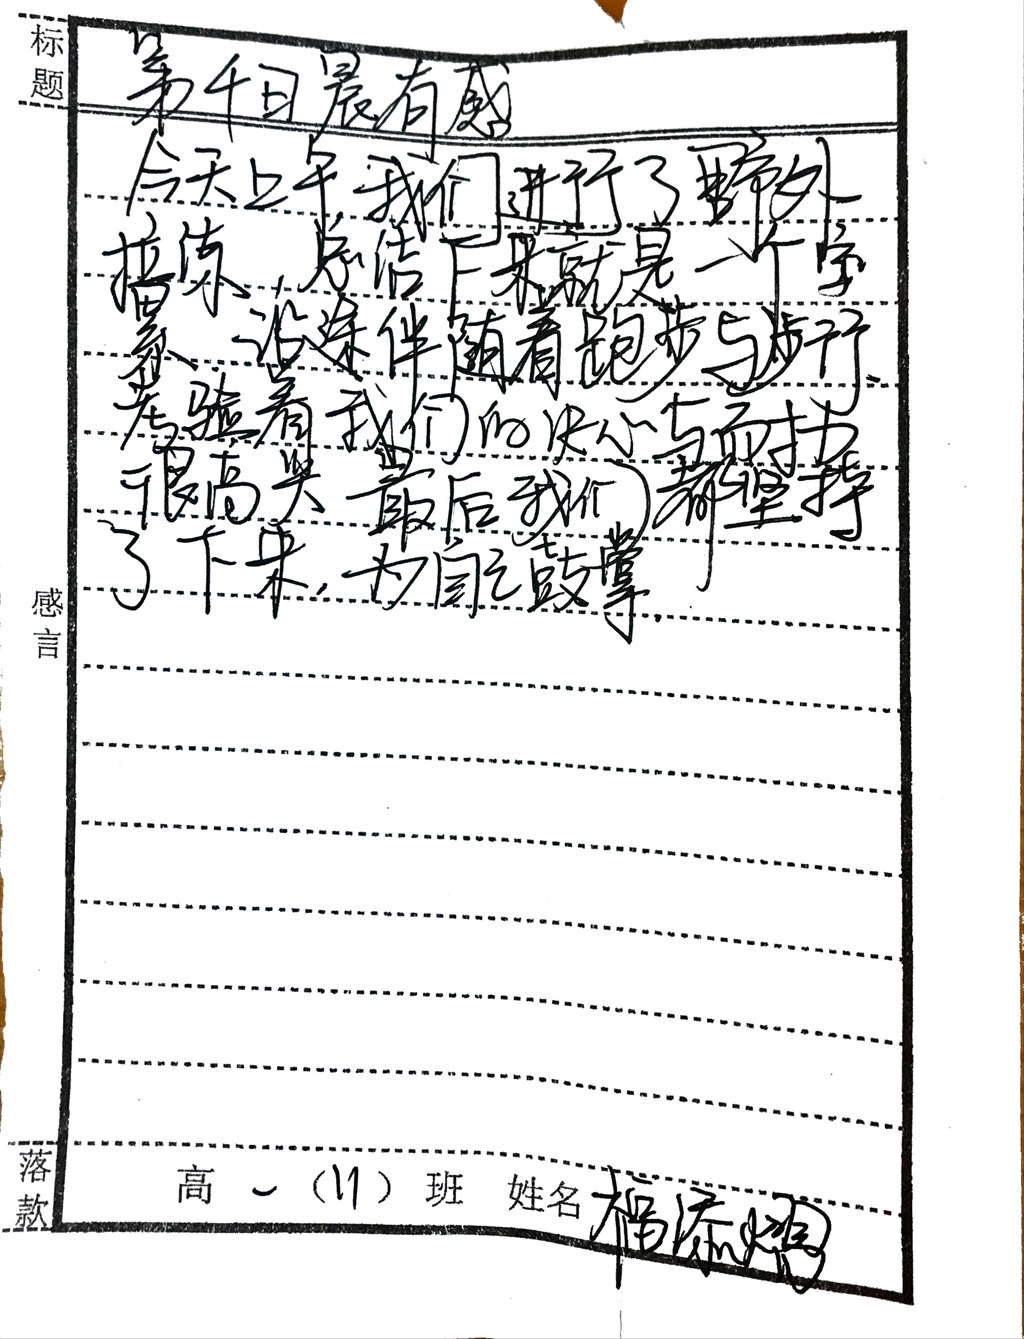 标题
第十日晨有感
今天上午我们进行了野外
拉练,总结下来就是一个字
累、沿途伴随着跑步与步行.
考验着我们的决心与耐力
很高兴 最后我们都坚持
了下来,为自己鼓掌.
感言
落款 高一(11)班 姓名